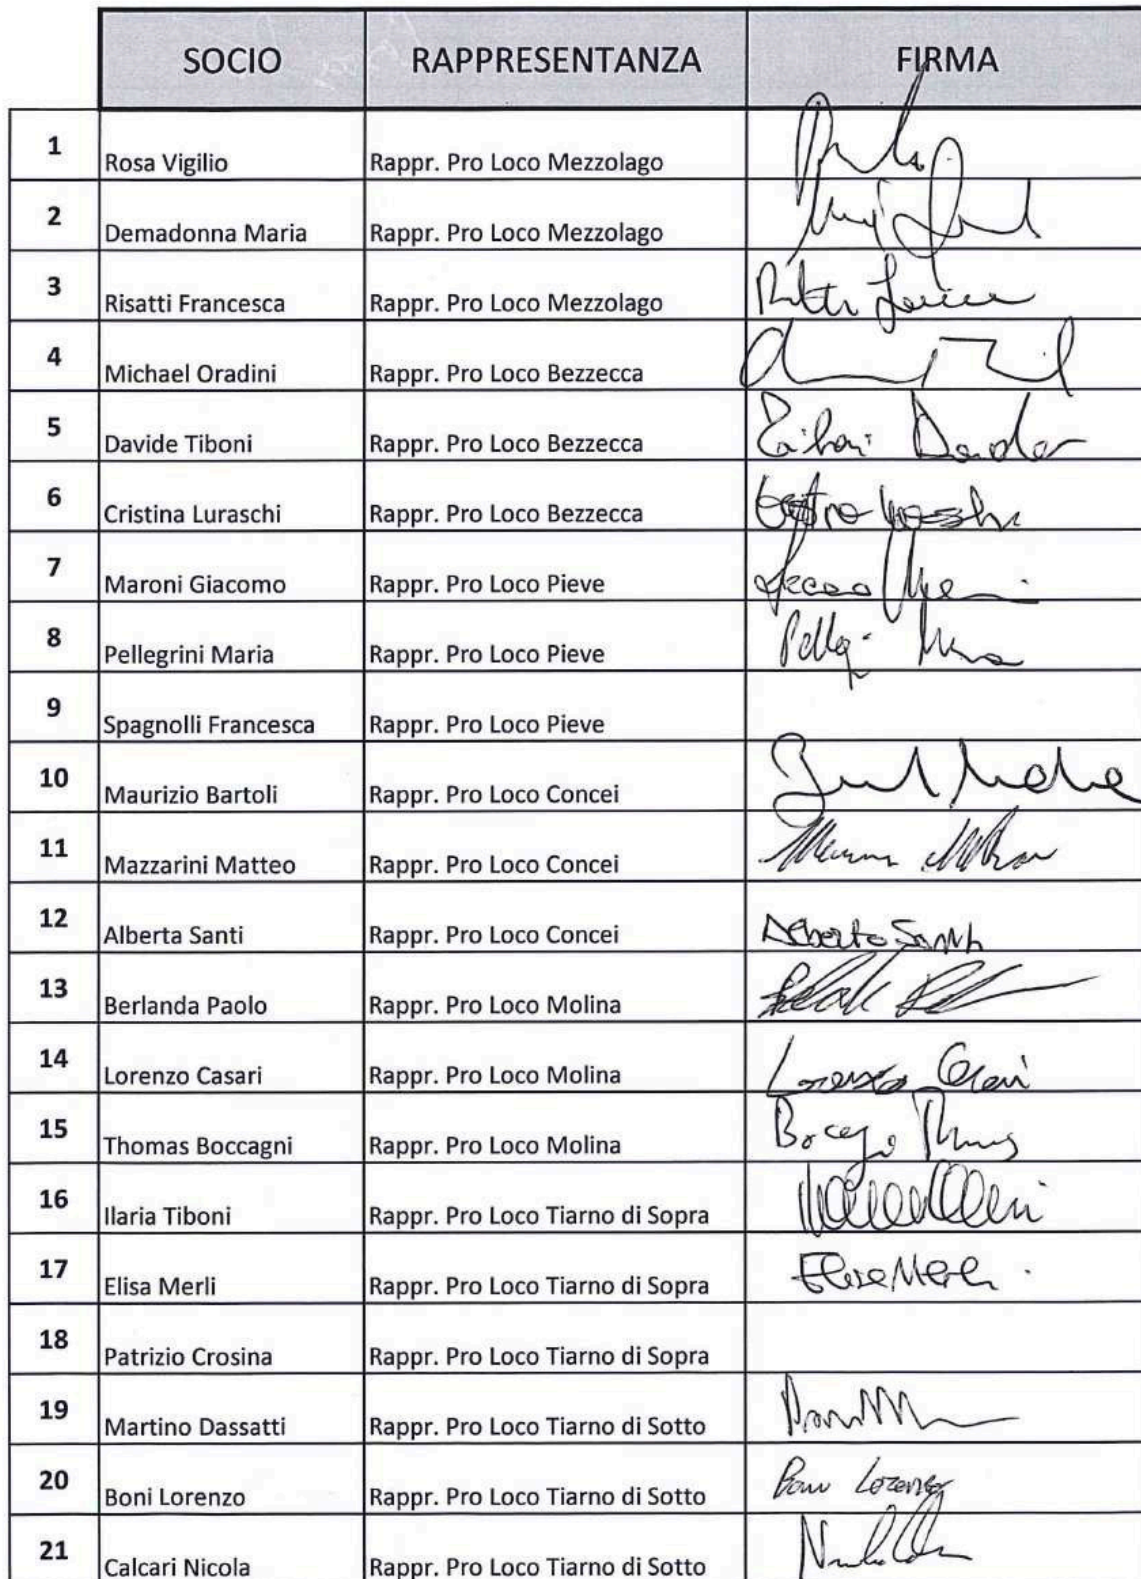 SOCIO RAPPRESENTANZA FIRMA
1 Rosa Vigilio Rappr. Pro Loco Mezzolago
2 Demadonna Maria Rappr. Pro Loco Mezzolago
3 Risatti Francesca Rappr. Pro Loco Mezzolago
4 Michael Oradini Rappr. Pro Loco Bezzecca
5 Davide Tiboni Rappr. Pro Loco Bezzecca
6 Cristina Luraschi Rappr. Pro Loco Bezzecca
7 Maroni Giacomo Rappr. Pro Loco Pieve
8 Pellegrini Maria Rappr. Pro Loco Pieve
9 Spagnolli Francesca Rappr. Pro Loco Pieve
10 Maurizio Bartoli Rappr. Pro Loco Concei
11 Mazzarini Matteo Rappr. Pro Loco Concei
12 Alberta Santi Rappr. Pro Loco Concei Alberta Santi
13 Berlanda Paolo Rappr. Pro Loco Molina
14 Lorenzo Casari Rappr. Pro Loco Molina Lorenzo Casari
15 Thomas Boccagni Rappr. Pro Loco Molina
16 Ilaria Tiboni Rappr. Pro Loco Tiarno di Sopra
17 Elisa Merli Rappr. Pro Loco Tiarno di Sopra Elisa Merli
18 Patrizio Crosina Rappr. Pro Loco Tiarno di Sopra
19 Martino Dassatti Rappr. Pro Loco Tiarno di Sotto
20 Boni Lorenzo Rappr. Pro Loco Tiarno di Sotto Boni Lorenzo
21 Calcari Nicola Rappr. Pro Loco Tiarno di Sotto